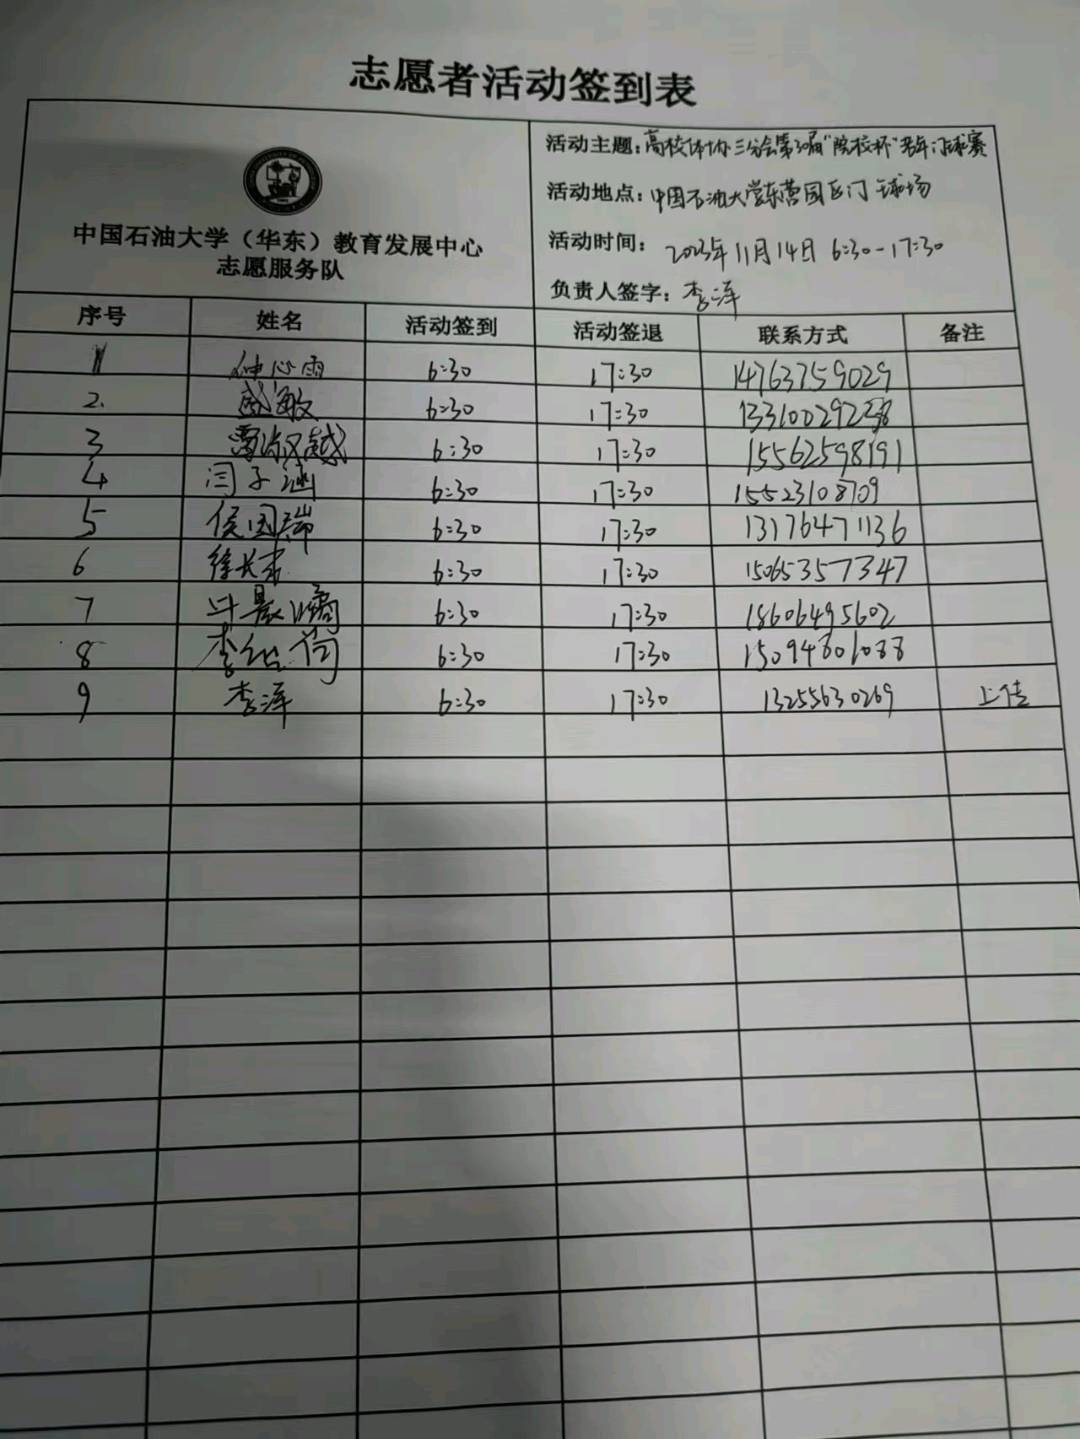 志愿者活动签到表
中国石油大学（华东）教育发展中心
志愿服务队
活动主题：高校体协三分会第30届"院校杯"老年门球赛
活动地点：中国石油大学东营园区门球场
活动时间：2023年11月14日 6:30-17:30
负责人签字：李泽
序号 姓名 活动签到 活动签退 联系方式 备注
1 仲心雨 6:30 17:30 14763759029
2. 盛敏 6:30 17:30 
3 6:30 17:30 15562598191
4 闫子涵 6:30 17:30 15523108709
5 侯国瑞 6:30 17:30 13176471136
6 徐长 6:30 17:30 15065357347
7 6:30 17:30 18606495602
8 李 6:30 17:30 15094801088
9 李泽 6:30 17:30 13255630269 上传